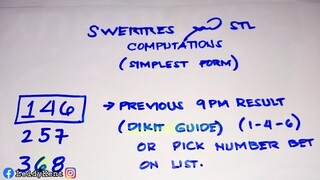 SWERTRES STL
COMPUTATIONS
(SIMPLEST FORM)
146 → PREVIOUS 9PM RESULT
257 (DIKIT GUIDE) (1-4-6)
OR PICK NUMBER BET
368 ON LIST.